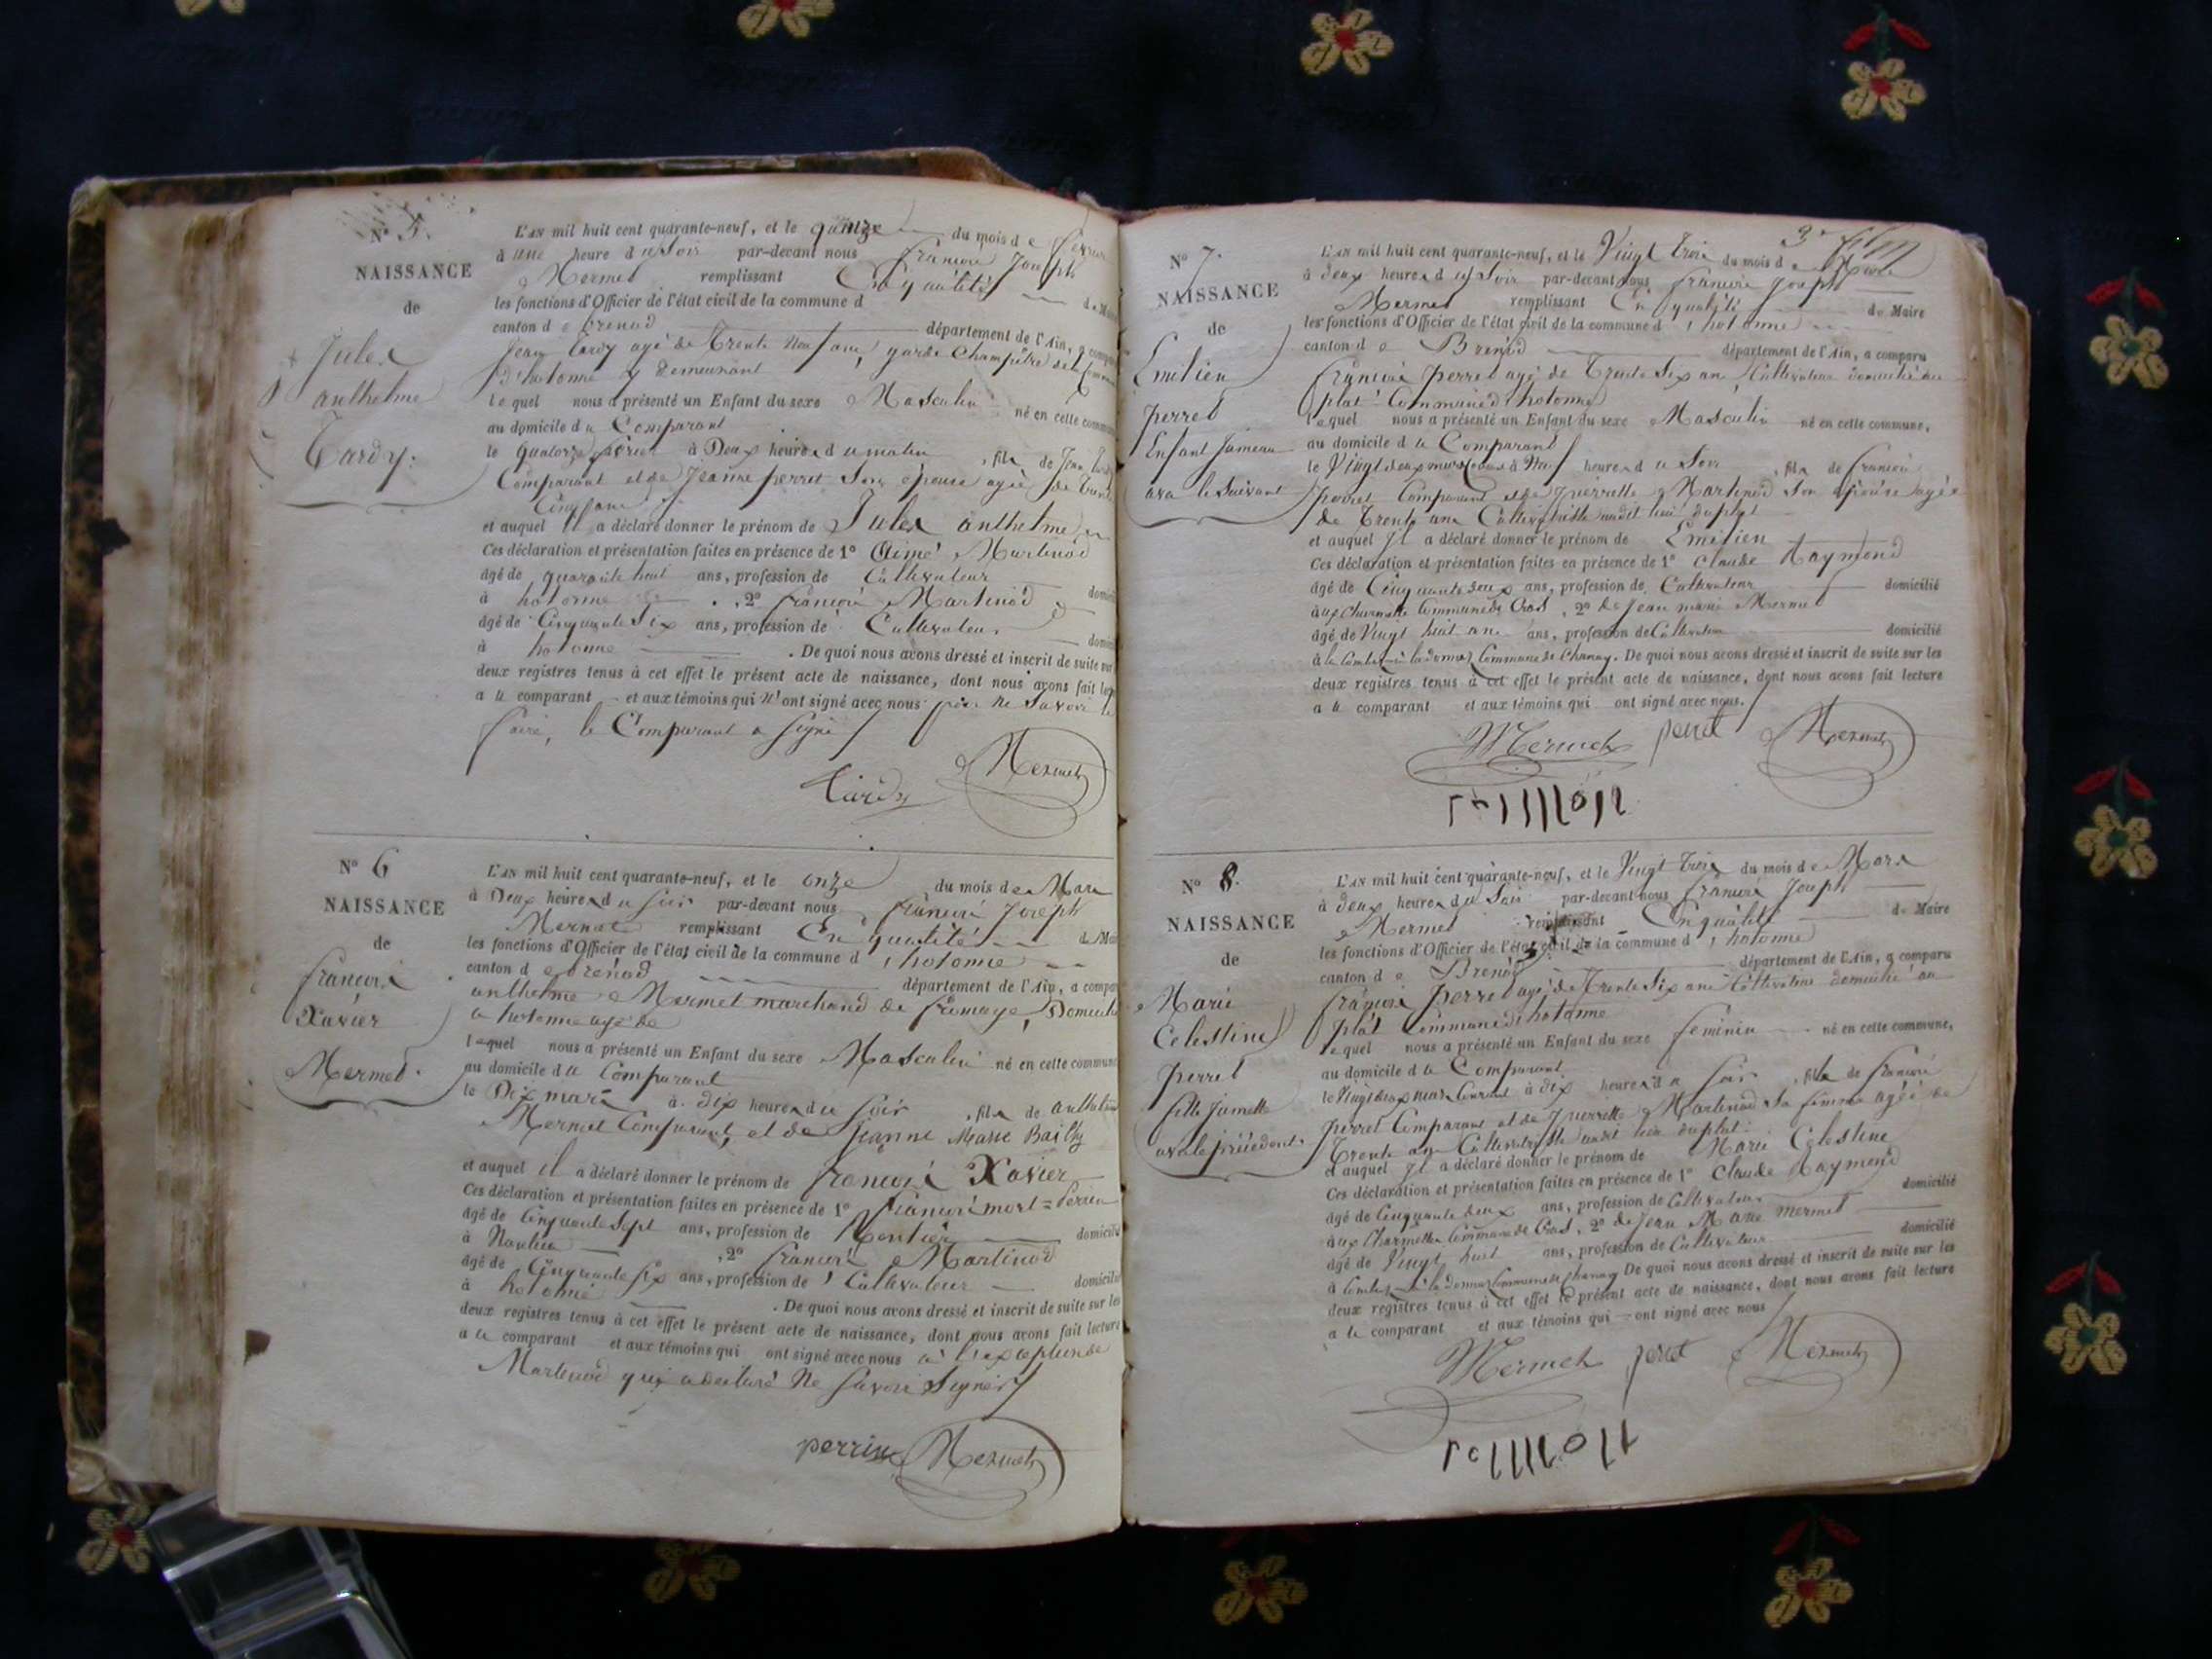 N° 5.
NAISSANCE
de
Jules
anthelme
Tardy.
L'AN mil huit cent quarante-neuf, et le quinze du mois de fevrier
à une heure du Soir par-devant nous françois Joseph
Mermet remplissant En qualité de Maire
les fonctions d'Officier de l'état civil de la commune d
canton de brenod département de l'Ain, a comparu
Jean Tardy agé de Trente Neuf ans, garde Champêtre de la Commune
d'hotonne y Demeurant
lequel nous a présenté un Enfant du sexe Masculin né en cette commune
au domicile du Comparant
le quatorze fevrier à Deux heures du matin, fils de Jean Tardy
Comparant et de Jeanne perret Son épouse agée de Trente
Cinq ans
et auquel il a déclaré donner le prénom de Jules anthelme
Ces déclaration et présentation faites en présence de 1° Aimé Martinod
âgé de quarante huit ans, profession de Cultivateur
à hotonne, 2° françois Martinod domicilié
âgé de Cinquante Six ans, profession de Cultivateur
à hotonne domicilié. De quoi nous avons dressé et inscrit de suite sur
deux registres tenus à cet effet le présent acte de naissance, dont nous avons fait lecture
a le comparant et aux témoins qui n'ont signé avec nous pour ne Savoir le
faire, le Comparant a Signé
Tardy Mermet
N° 6
NAISSANCE
de
françois
Xavier
Mermet.
L'AN mil huit cent quarante-neuf, et le onze du mois de Mars
à Deux heures du soir par-devant nous françois Joseph
Mermet remplissant En qualité de Maire
les fonctions d'Officier de l'état civil de la commune d'hotonne
canton de brenod département de l'Ain, a comparu
anthelme Mermet marchand de fromage, Domicilié
a hotonne agé de
lequel nous a présenté un Enfant du sexe Masculin né en cette commune
au domicile du Comparant
le Dix mars à dix heures du soir, fils de anthelme
Mermet Comparant, et de Jeanne Marie Bailly
et auquel il a déclaré donner le prénom de françois Xavier
Ces déclaration et présentation faites en présence de 1° françois mort=Perrin
âgé de Cinquante Sept ans, profession de Rentier domicilié
à Nantua, 2° françois Martinod
âgé de Cinquante Six ans, profession de Cultivateur domicilié
à hotonne. De quoi nous avons dressé et inscrit de suite sur les
deux registres tenus à cet effet le présent acte de naissance, dont nous avons fait lecture
a le comparant et aux témoins qui ont signé avec nous à l'exception de
Martinod qui a declaré Ne Savoir Signer
perrin Mermet
N° 7.
NAISSANCE
de
Emilien
perret
Enfant Jumeau
avec le Suivant
3e
L'AN mil huit cent quarante-neuf, et le Vingt Trois du mois de Mars
à deux heures du Soir par-devant nous françois Joseph
Mermet remplissant En qualité de Maire
les fonctions d'Officier de l'état civil de la commune d'hotonne
canton de Brenod département de l'Ain, a comparu
françois perret agé de Trente Six ans, Cultivateur domicilié au
plat Commune d'hotonne
lequel nous a présenté un Enfant du sexe Masculin né en cette commune,
au domicile du Comparant
le Vingt deux mars Courant à Neuf heures du Soir, fils de françois
perret Comparant et de pierrette Martinod Son épouse agée
de Trente ans Cultivatrice audit lieu du plat
et auquel Il a déclaré donner le prénom de Emilien
Ces déclaration et présentation faites en présence de 1° Claude Raymond
âgé de Cinquante deux ans, profession de Cultivateur domicilié
aux Charmettes Commune de , 2° de Jean marie Mermet
âgé de Vingt huit ans ans, profession de Cultivateur domicilié
à la Commune de Chanay. De quoi nous avons dressé et inscrit de suite sur les
deux registres tenus à cet effet le présent acte de naissance, dont nous avons fait lecture
a le comparant et aux témoins qui ont signé avec nous.
Mermet perret Mermet
N° 8.
NAISSANCE
de
Marie
Celestine
perret
fille Jumelle
avec le précédent.
L'AN mil huit cent quarante-neuf, et le Vingt Trois du mois de Mars
à deux heures du Soir par-devant nous françois Joseph
Mermet remplissant En qualité de Maire
les fonctions d'Officier de l'état civil de la commune d'hotonne
canton de Brenod département de l'Ain, a comparu
françois perret agé de Trente Six ans Cultivateur domicilié au
plat Commune d'hotonne
lequel nous a présenté un Enfant du sexe feminin né en cette commune,
au domicile du Comparant
le Vingt deux mars Courant à dix heures du soir, fille de françois
perret Comparant et de pierrette Martinod Sa femme agée de
Trente ans Cultivatrice audit lieu du plat
et auquel Il a déclaré donner le prénom de Marie Celestine
Ces déclaration et présentation faites en présence de 1° Claude Raymond
âgé de Cinquante deux ans, profession de Cultivateur domicilié
aux Charmettes Commune de , 2° de Jean Marie mermet
âgé de Vingt huit ans, profession de Cultivateur domicilié
à Commune de Chanay De quoi nous avons dressé et inscrit de suite sur les
deux registres tenus à cet effet le présent acte de naissance, dont nous avons fait lecture
a le comparant et aux témoins qui ont signé avec nous
Mermet perret Mermet